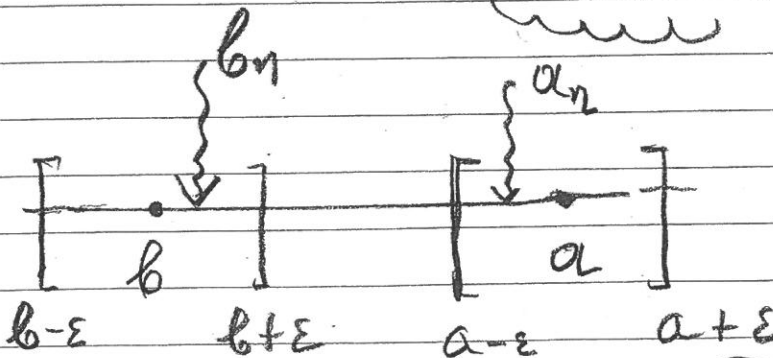 bₙ aₙ
b a
b-ε b+ε a-ε a+ε